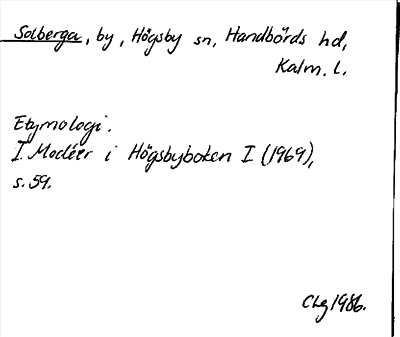 Solberga, by, Högsby sn, Handbörds hd,
Kalm. l.
Etymologi.
I. Modéer i Högsbyboken I (1969),
s. 59.
CLg 1986.